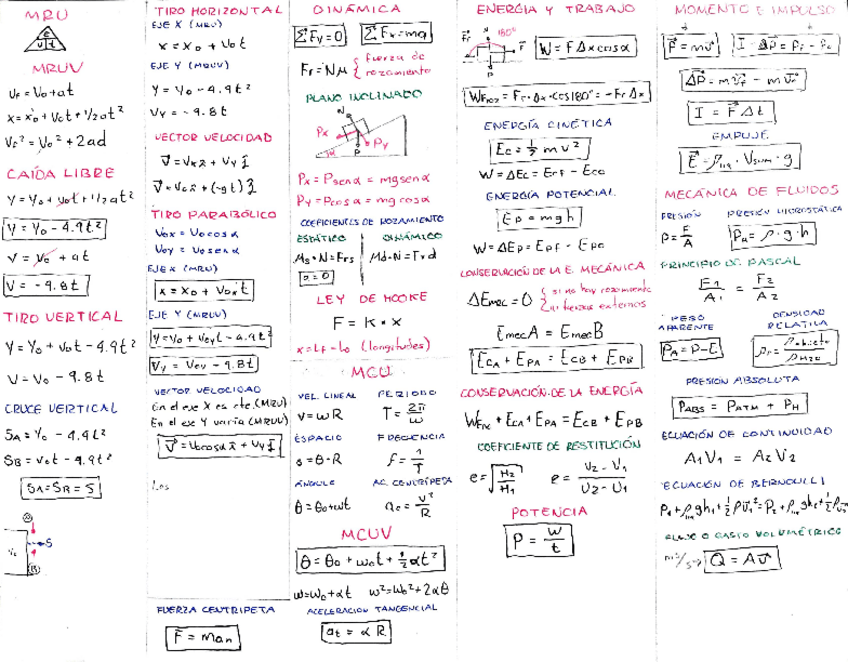 MRU
e
v t
MRUV
Vf = Vo + at
x = xo + Vot + 1/2 at²
Vf² = Vo² + 2ad
CAÍDA LIBRE
y = yo + Vot + 1/2 at²
y = yo - 4.9t²
V = Vo + at
V = -9.8t
TIRO VERTICAL
y = yo + Vot - 4.9t²
V = Vo - 9.8t
CRUCE VERTICAL
SA = yo - 4.9t²
SB = Vot - 4.9t²
SA = SB = S
A
yo
S
B
TIRO HORIZONTAL
EJE X (MRU)
x = xo + Vot
EJE Y (MRUV)
y = yo - 4.9t²
Vy = -9.8t
VECTOR VELOCIDAD
TIRO PARABÓLICO
Vox = Vo cos α
Voy = Vo sen α
EJE X (MRU)
x = xo + Vox t
EJE Y (MRUV)
y = yo + Voy t - 4.9t²
Vy = Voy - 9.8t
VECTOR VELOCIDAD
En el eje X es cte. (MRU)
En el eje Y varía (MRUV)
Los
FUERZA CENTRIPETA
F = m an
DINÁMICA
ΣFy = 0 ΣFx = ma
Fr = Nμ { fuerza de
rozamiento
PLANO INCLINADO
N
Px
Py
P
Px = P sen α = mg sen α
Py = P cos α = mg cos α
COEFICIENTES DE ROZAMIENTO
ESTÁTICO DINÁMICO
μs·N = Frs
a = 0
LEY DE HOOKE
F = K · x
x = Lf - Lo (longitudes)
MCU
VEL. LINEAL PERIODO
v = ωR T = 2π/ω
ESPACIO FRECUENCIA
s = θ·R f = 1/T
ÁNGULO AC. CENTRÍPETA
θ = θo + ωt ac = v²/R
MCUV
θ = θo + ωot + 1/2 αt²
ω = ωo + αt ω² = ωo² + 2αθ
ACELERACION TANGENCIAL
at = α R
ENERGÍA Y TRABAJO
180°
Fr
F
W = F Δx cos α
WFroz = Fr · Δx · cos180° = -Fr Δx
ENERGÍA CINÉTICA
Ec = 1/2 m v²
W = ΔEc = Ecf - Eco
ENERGÍA POTENCIAL
Ep = mgh
W = ΔEp = Epf - Epo
CONSERVACIÓN DE LA E. MECÁNICA
ΔEmec = 0 { si no hay rozamiento
ni fuerzas externas
EmecA = EmecB
EcA + EPA = EcB + EPB
CONSERVACIÓN DE LA ENERGÍA
WFnc + EcA + EPA = EcB + EPB
COEFICIENTE DE RESTITUCIÓN
e = √(H2/H1)
POTENCIA
P = W/t
MOMENTO E IMPULSO
I = Δp = Pf - Po
I = F Δt
EMPUJE
E = ρliq · Vsum · g
MECÁNICA DE FLUIDOS
PRESIÓN PRESIÓN HIDROSTÁTICA
P = F/A PH = ρ · g · h
PRINCIPIO DE PASCAL
F1/A1 = F2/A2
PESO DENSIDAD
APARENTE RELATIVA
PA = P - E ρr = ρobjeto/ρH2O
PRESIÓN ABSOLUTA
PABS = PATM + PH
ECUACIÓN DE CONTINUIDAD
A1V1 = A2V2
ECUACIÓN DE BERNOULLI
FLUJO O GASTO VOLUMÉTRICO
m³/s → Q = Av